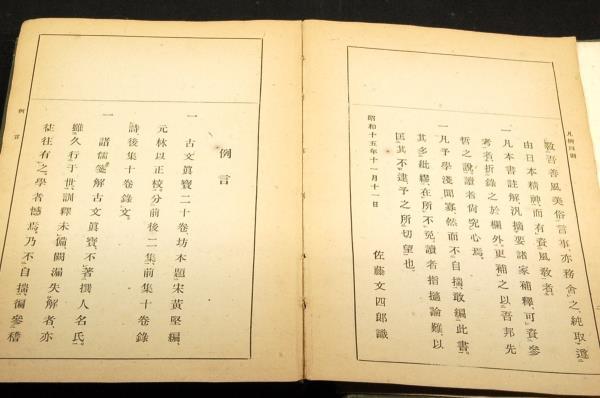 凡例四則
敦吾善風美俗言事亦務舍之、純取遵
由日本精神而有資風敎者。
一 凡本書註解、汎摘要諸家補釋、可資參
考者、折錄之於欄外、更補之以吾邦先
哲之說、讀者尙究心焉。
一 凡予學淺聞寡、然而不自揣、敢編此書。
其多紕繆、在所不免、讀者指擿論難、以
匡其不逮、予之所切望也。
昭和十五年十一月十一日
佐藤文四郞識
例言
一 古文眞寶二十卷、坊本題宋黃堅編、
元林以正校、分前後二集、前集十卷錄
詩、後集十卷錄文。
一 諸儒箋解古文眞寶、不著撰人名氏。
雖久行于世、訓釋未備、闕漏失解者、亦
往往有之、學者憾焉。乃不自揣、徧參稽
例言